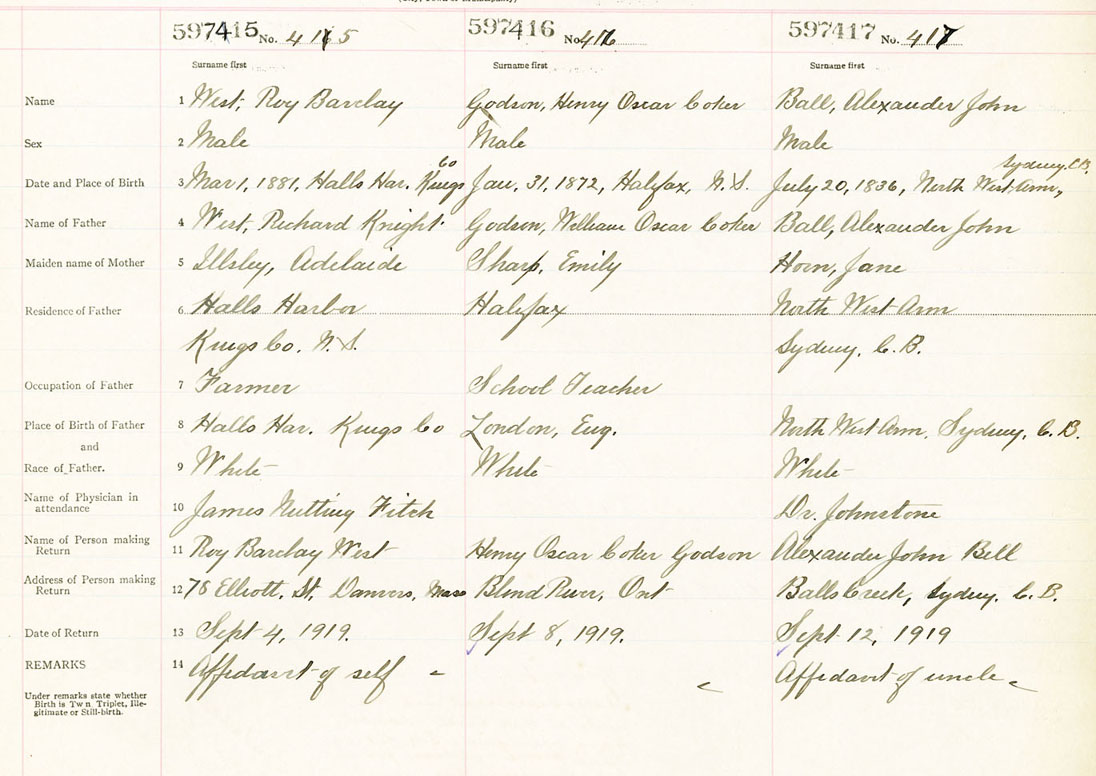 597415 No. 415 597416 No. 416 597417 No. 417
Surname first Surname first Surname first
Name 1 West, Roy Barclay Godson, Henry Oscar Coker Ball, Alexander John
Sex 2 Male Male Male
Co Sydney, C.B.
Date and Place of Birth 3 Mar 1, 1881, Halls Har. Kings Jan, 31, 1872, Halifax, N.S. July 20, 1836, North West Arm,
Name of Father 4 West, Richard Knight Godson, William Oscar Coker Ball, Alexander John
Maiden name of Mother 5 Illsley, Adelaide Sharp, Emily Horn, Jane
Residence of Father 6 Halls Harbor Halifax North West Arm
Kings Co. N.S. Sydney, C.B.
Occupation of Father 7 Farmer School Teacher
Place of Birth of Father 8 Halls Har. Kings Co London, Eng. North West Arm, Sydney, C.B.
and
Race of Father. 9 White White White
Name of Physician in
attendance 10 James Nutting Fitch Dr. Johnstone
Name of Person making
Return 11 Roy Barclay West Henry Oscar Coker Godson Alexander John Bell
Address of Person making
Return 12 78 Elliott, St, Danvers, Mass Blind River, Ont Balls Creek, Sydney, C.B.
Date of Return 13 Sept 4, 1919. Sept 8, 1919. Sept 12, 1919
REMARKS 14 Affidavit of self Affidavit of uncle
Under remarks state whether
Birth is Tw n Triplet, Ille-
gitimate or Still-birth.